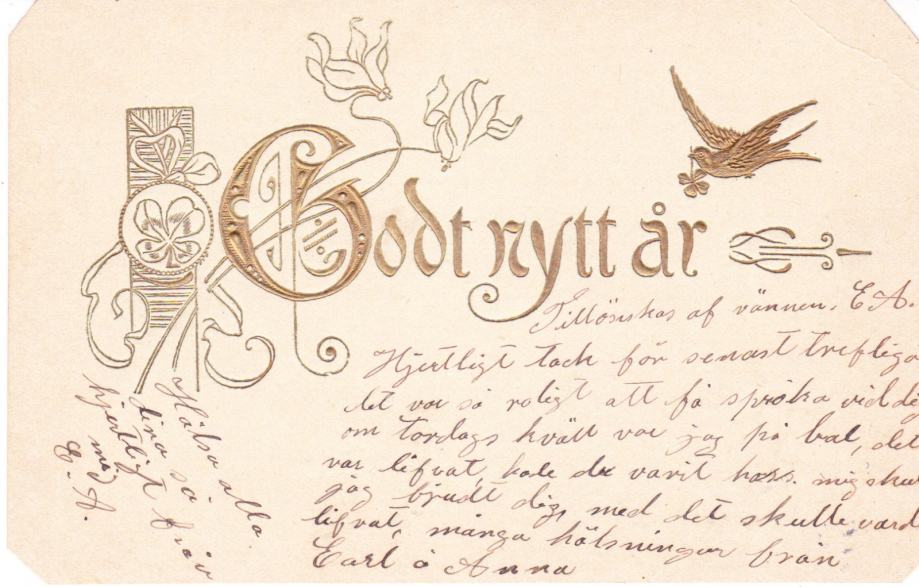 Godt nytt år
Tillönskas af vännen. E A.
Hjertligt tack för senast trefliga
det var så roligt att få språka vid di
om tordags kvält var jag på bal, det
var lifvat, hade du varit hoss mig sku
jag bjudt dig med det skulle vard
lifvat, många hälsningar från
Carl å Anna
Hälsa alla
dina så
hjertligt från
mig
E. A.